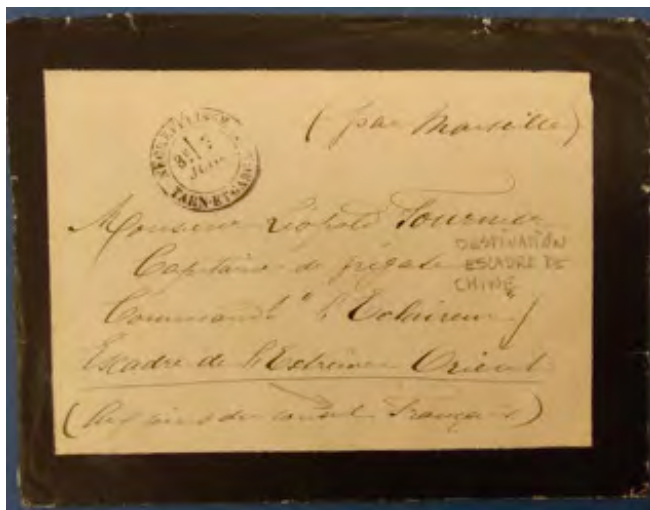 (par Marseille)
NEGREPELISSE
JUIL
TARN-ET-GARNE
Monsieur Léopold Fournier
Capitaine de frégate
DESTINACIÓN
ESCADRE DE
CHINE
Command^t "l'Eclaireur"
Escadre de l'Extrême Orient
(Aux soins du consul Français)